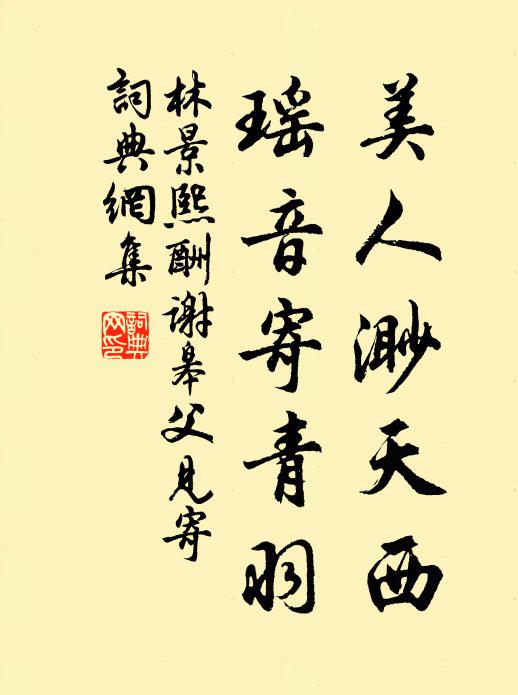 美人渺天西
瑶音寄青羽
林景熙酬谢皋父見寄
詞典網集
詞典網印